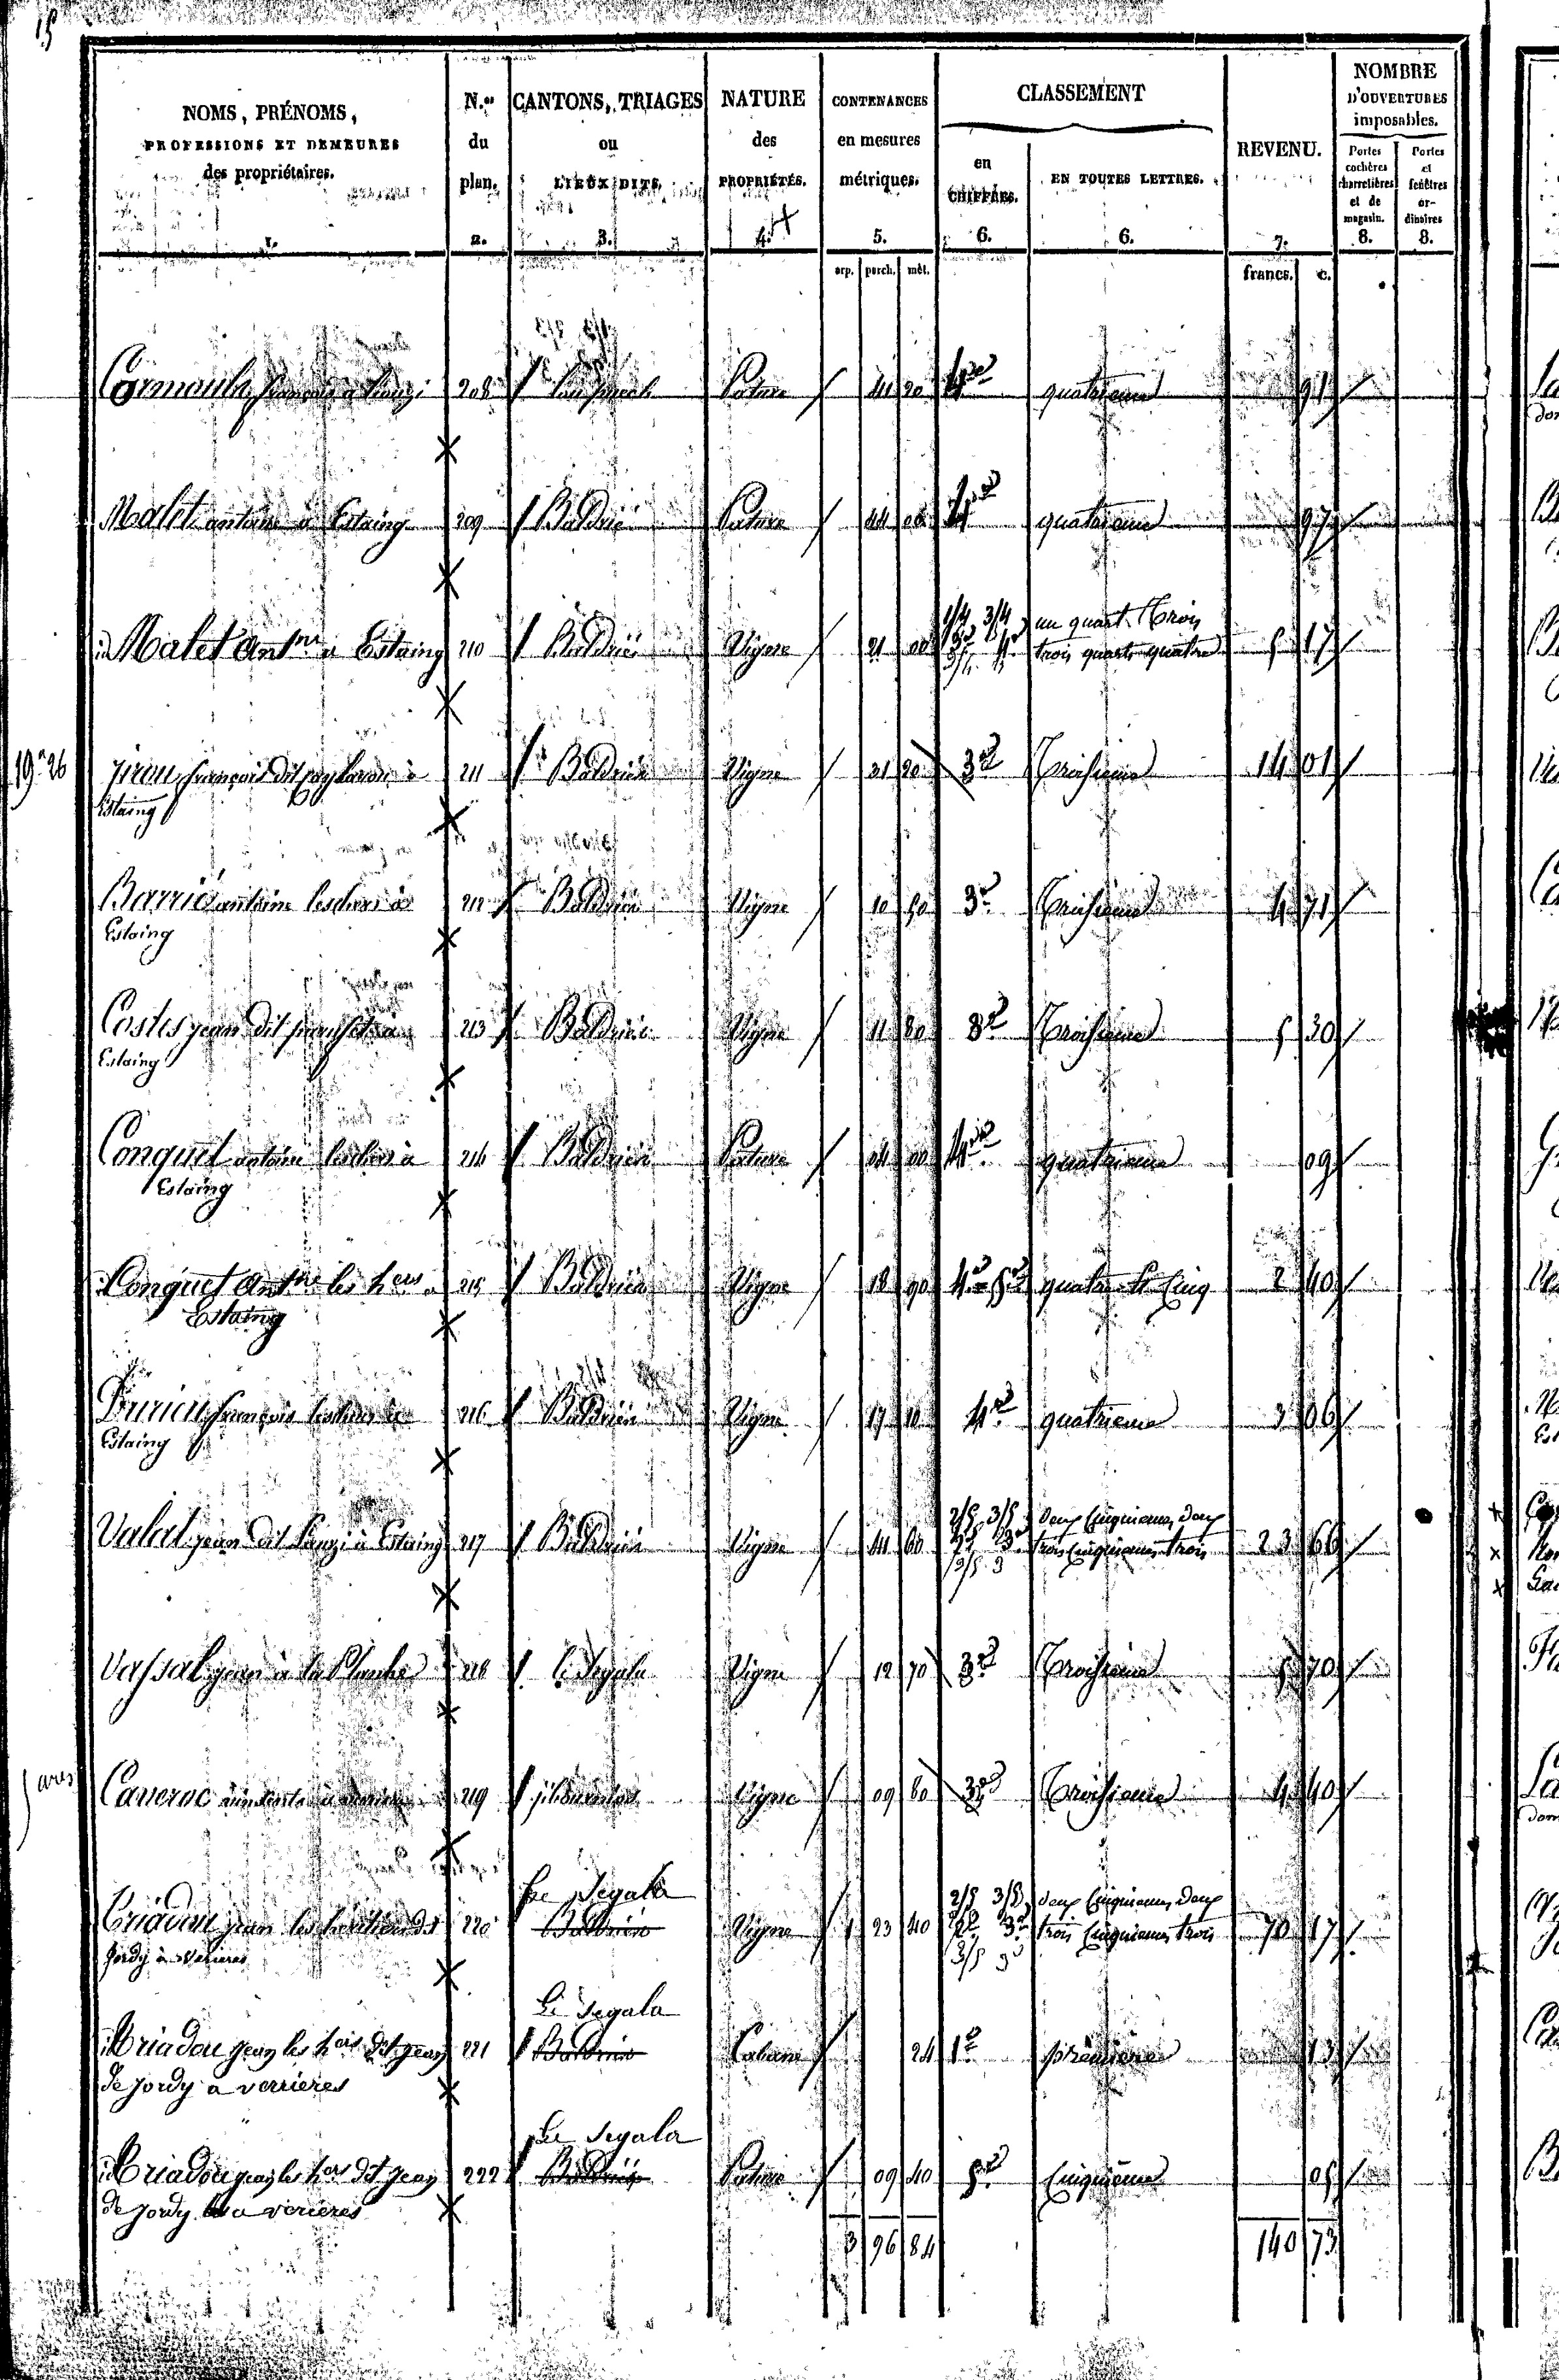 15
NOMS, PRÉNOMS,
PROFESSIONS ET DEMEURES
des propriétaires.
1.
N.os
du
plan.
2.
CANTONS, TRIAGES
ou
LIEUX DITS.
3.
NATURE
des
PROPRIÉTÉS.
4.
CONTENANCES
en mesures
métriques.
5.
arp. perch. mèt.
CLASSEMENT
en
CHIFFRES.
6.
EN TOUTES LETTRES.
6.
REVENU.
7.
francs. c.
NOMBRE
D'OUVERTURES
imposables.
Portes
cochères
charretières
et de
magasin.
8.
Portes
et
fenêtres
or-
dinaires
8.
208 Pature 41 20 4me quatrieme 91
Malet antoine à Estaing 209 Baldrié Pature 44 00 4me quatrieme 97
id Malet Antne à Estaing 210 Baldrié Vigne 21 00 1/4 3/4 un quart Trois
trois quarts quatre 5 17
19a 26 françois dit à 211 Baldrié Vigne 31 20 3e Troisieme 14 01
Estaing
Barrié antoine à 212 Baldrié Vigne 10 50 3e Troisieme 4 71
Estaing
Costes jean dit à 213 Baldrié Vigne 11 80 3e Troisieme 5 30
Estaing
Conquet antoine à 214 Baldrié Pature 04 00 4me quatrieme 09
Estaing
id Conquet Antne les hers a 215 Baldrié Vigne 18 90 4e 5e quatre et Cinq 2 40
Estaing
françois à 216 Baldrié Vigne 17 10 4e quatrieme 3 06
Estaing
Valat jean dit à Estaing 217 Baldrié Vigne 44 60 2/5 3/5 deux Cinquiemes deux
trois Cinquiemes trois 23 66
Vassal jean à la Planhe 218 le Segala Vigne 12 70 3e Troisieme 5 70
ares
Caneroc 219 Vigne 09 80 3e Troisieme 4 40
Le Segala
Criadou jean les 220 Baldrié Vigne 1 23 40 2/5 3/5 deux Cinquiemes deux
trois Cinquiemes trois 70 17
Jordy à Verieres
Le Segala
id Criadou jean les hers dit jean 221 Baldrié Cabane 24 1e première 13
de jordy a verrieres
Le Segala
id Criadou jean les hers dit jean 222 Baldrié Pature 09 40 5e Cinquieme 05
de jordy a verieres
3 96 84 140 73